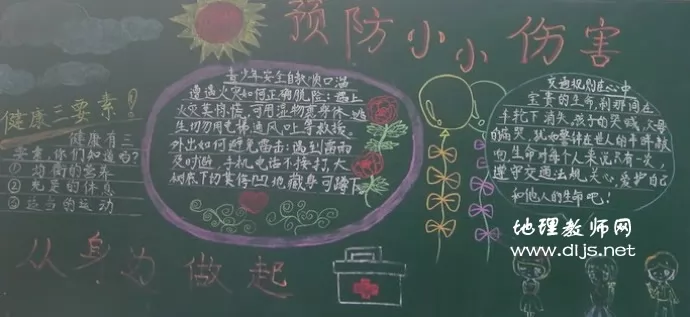 预防小小伤害
健康三要素!
健康有三
要素,你们知道吗?
①均衡的营养
②充足的休息
③适当的运动
青少年安全自救顺口溜
遭遇火灾如何正确脱险:遇上
火灾莫惊慌,可用湿物裹身体,逃
生切勿用电梯,通风口上等救援。
外出如何避免雷击:遇到雷雨
及时避,手机电话不接打,大
树底下切莫停,凹地藏身可蹲下
交通规则在心中
宝贵的生命,刹那间在
车轮下消失,孩子的哭喊,父母
的痛哭,犹如警钟在世人的耳畔敲
响,生命对每个人来说只有一次,
遵守交通法规,关心、爱护自己
和他人的生命吧!
从身边做起
地理教师网
www.dljs.net